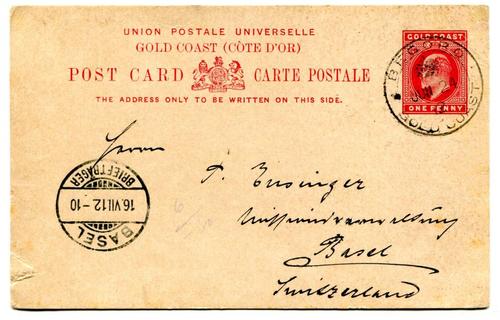 UNION POSTALE UNIVERSELLE
GOLD COAST (CÔTE D'OR)
POST CARD CARTE POSTALE
THE ADDRESS ONLY TO BE WRITTEN ON THIS SIDE.
GOLD COAST
ONE PENNY
BEGORO
GOLD COAST
Herrn
P. Ensinger
Missionsverwaltung
Basel
Switzerland
BRIEFTRÄGER
16.VII.12-10
BASEL